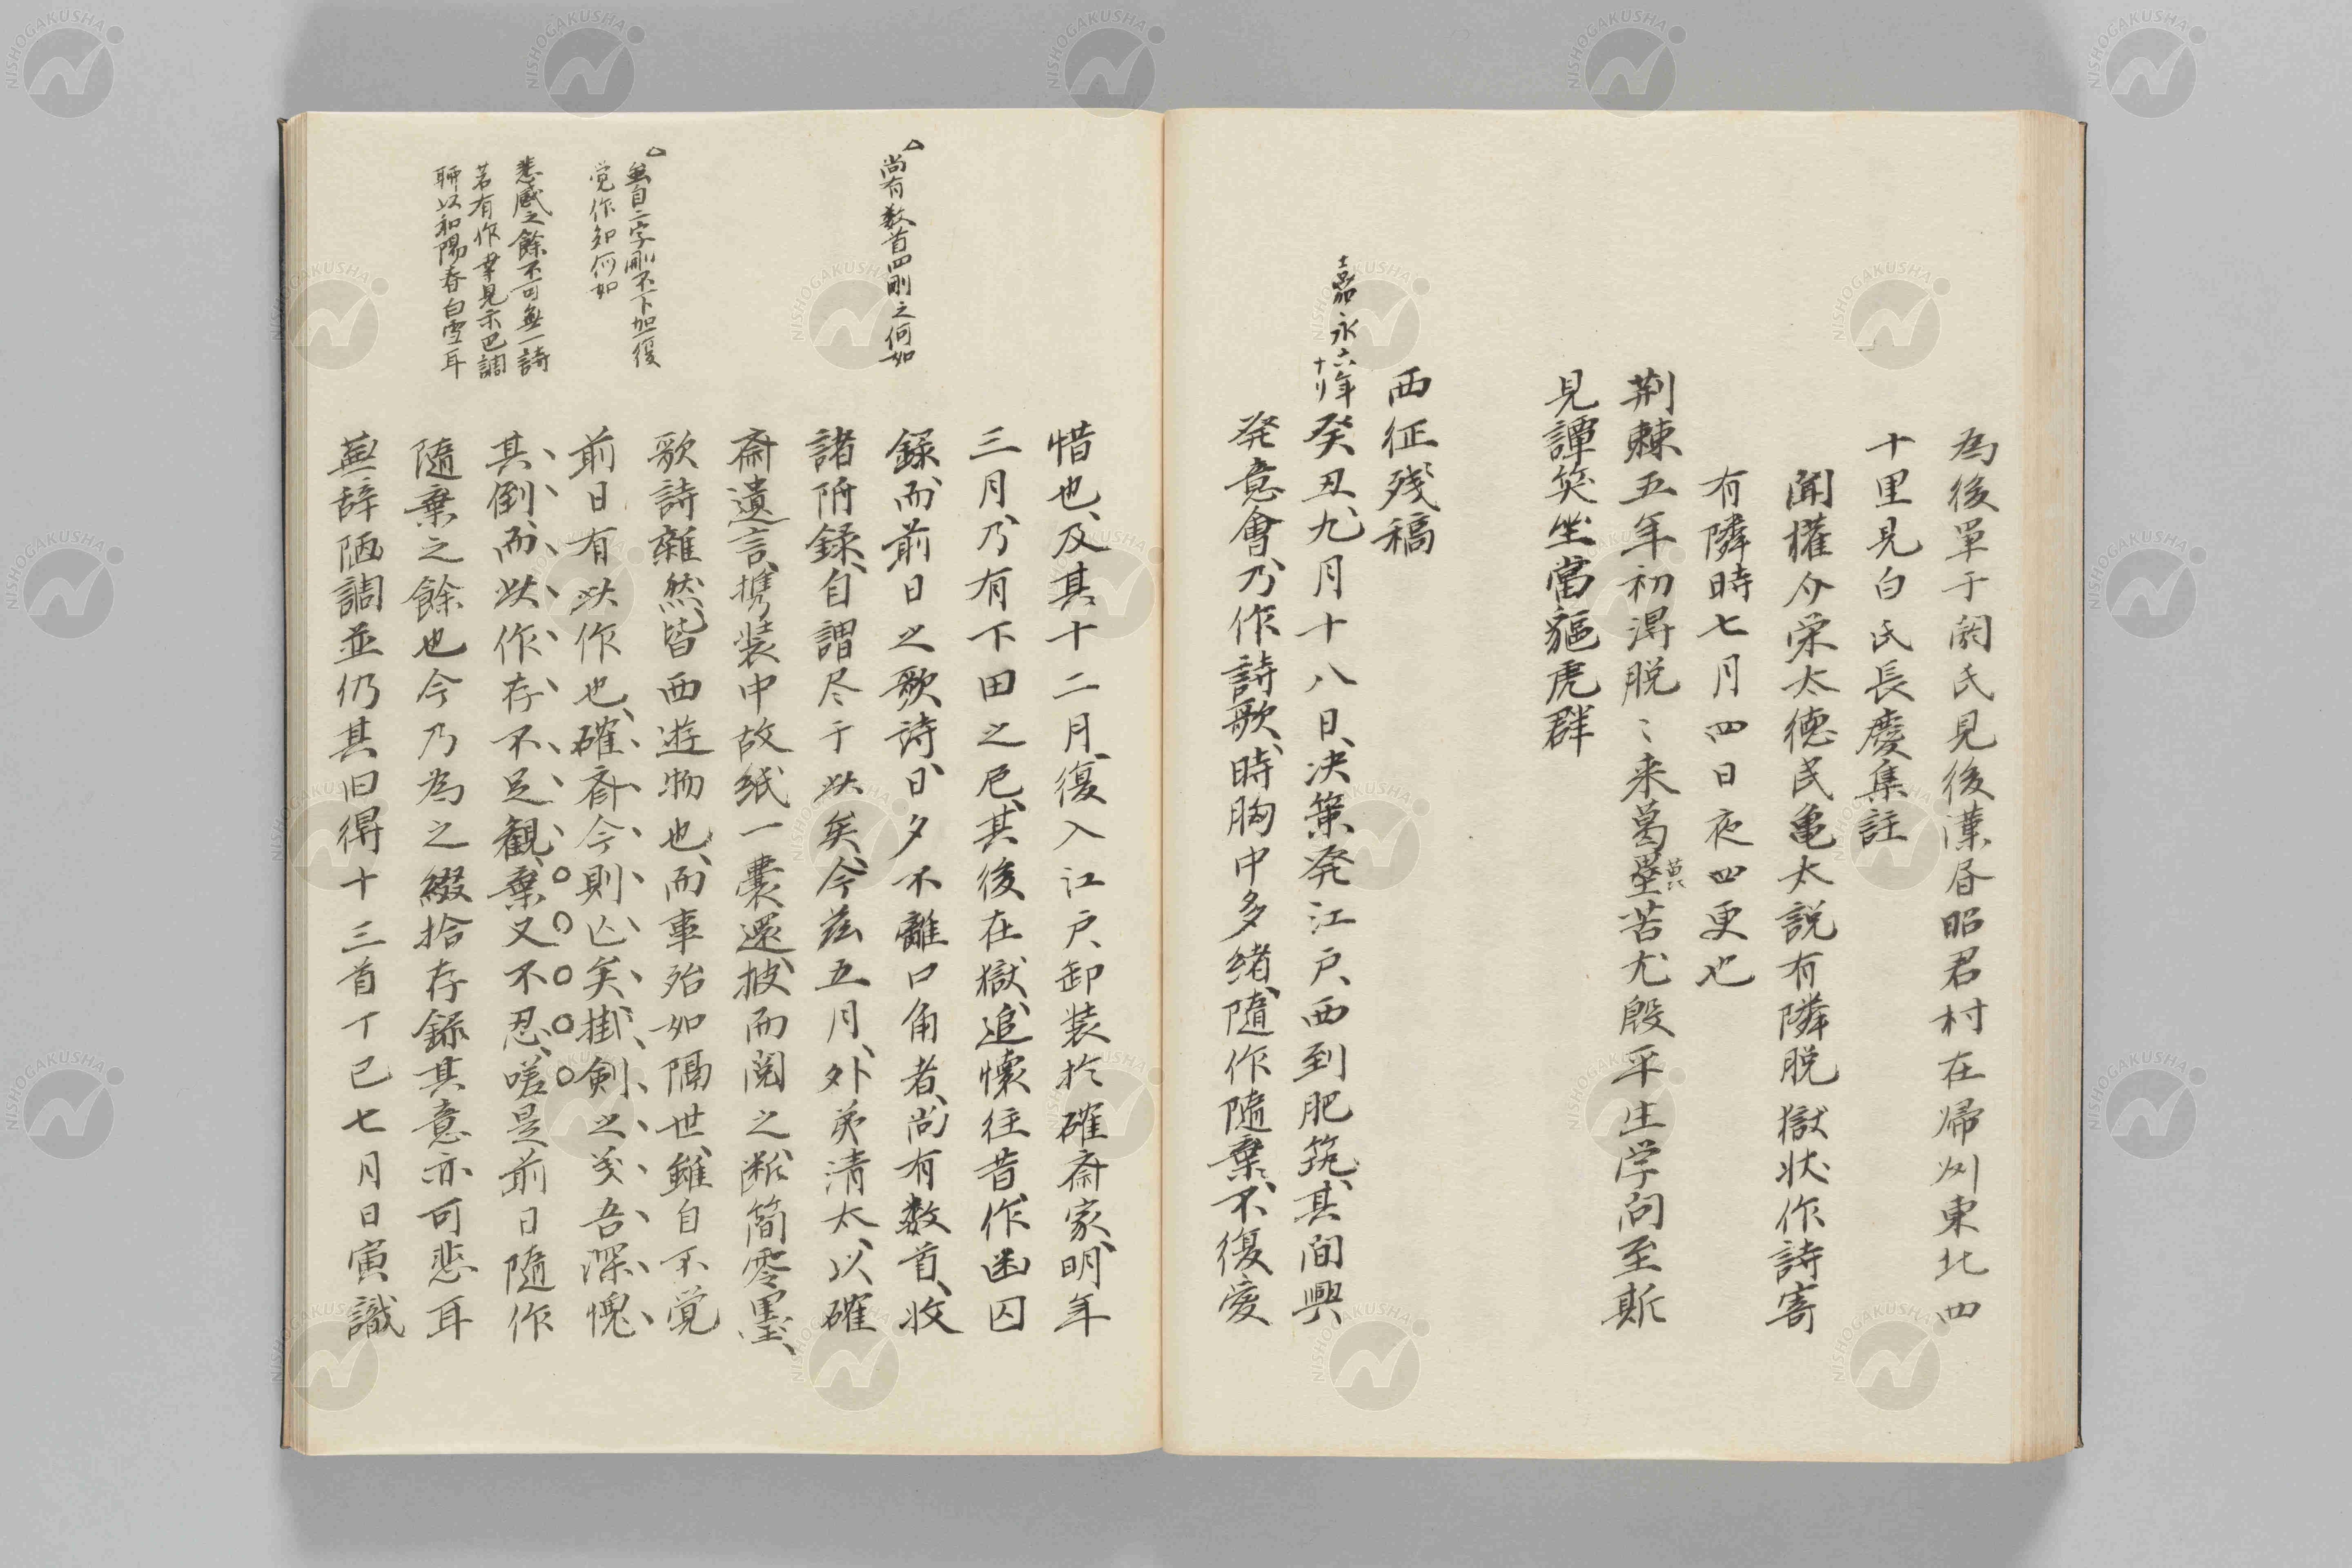 為後單于閼氏見後漢書昭君村在帰州東北四
十里見白氏長慶集註
聞権介栄太徳民亀太説有隣脱獄状作詩寄
有隣時七月四日夜四更也
荆棘五年初淂脱〻来葛壘苦尤殷平生学問至斯
見譚笑坐當貙虎群
西征残稿
嘉永六年
癸丑九月十八日、决策発江戸、西到肥筑、其間興
発意會、乃作詩歌、時胸中多緒、隨作隨棄、不復愛
惜也、及其十二月、復入江戸、卸装於確斎家、明年
三月、乃有下田之厄、其後在獄、追懐往昔、作幽囚
録、而前日之歌詩、日夕不離口角者、尚有数首、收
諸附録、自謂尽于此矣、今茲五月、外弟清太、以確
斎遺言、携装中故紙一嚢還、披而閲之、断簡零墨、
歌詩雜然、皆西遊物也、而事殆如隔世、雖自不覚
前日有此作也、確斎今則亡矣、掛剣之義、吾深愧
其倒、而此作存不足観、棄又不忍、嗟是前日隨作
隨棄之餘也今乃為之綴拾存録其意亦可悲耳
蕪辞陋調並仍其旧得十三首丁巳七月日寅識
尚有数首四刪之何如
雖自二字刪不下加一復
覚作知何如
悲感之餘不可無一詩
若有作幸見示巴調
聊以和陽春白雪耳
NISHOGAKUSHA